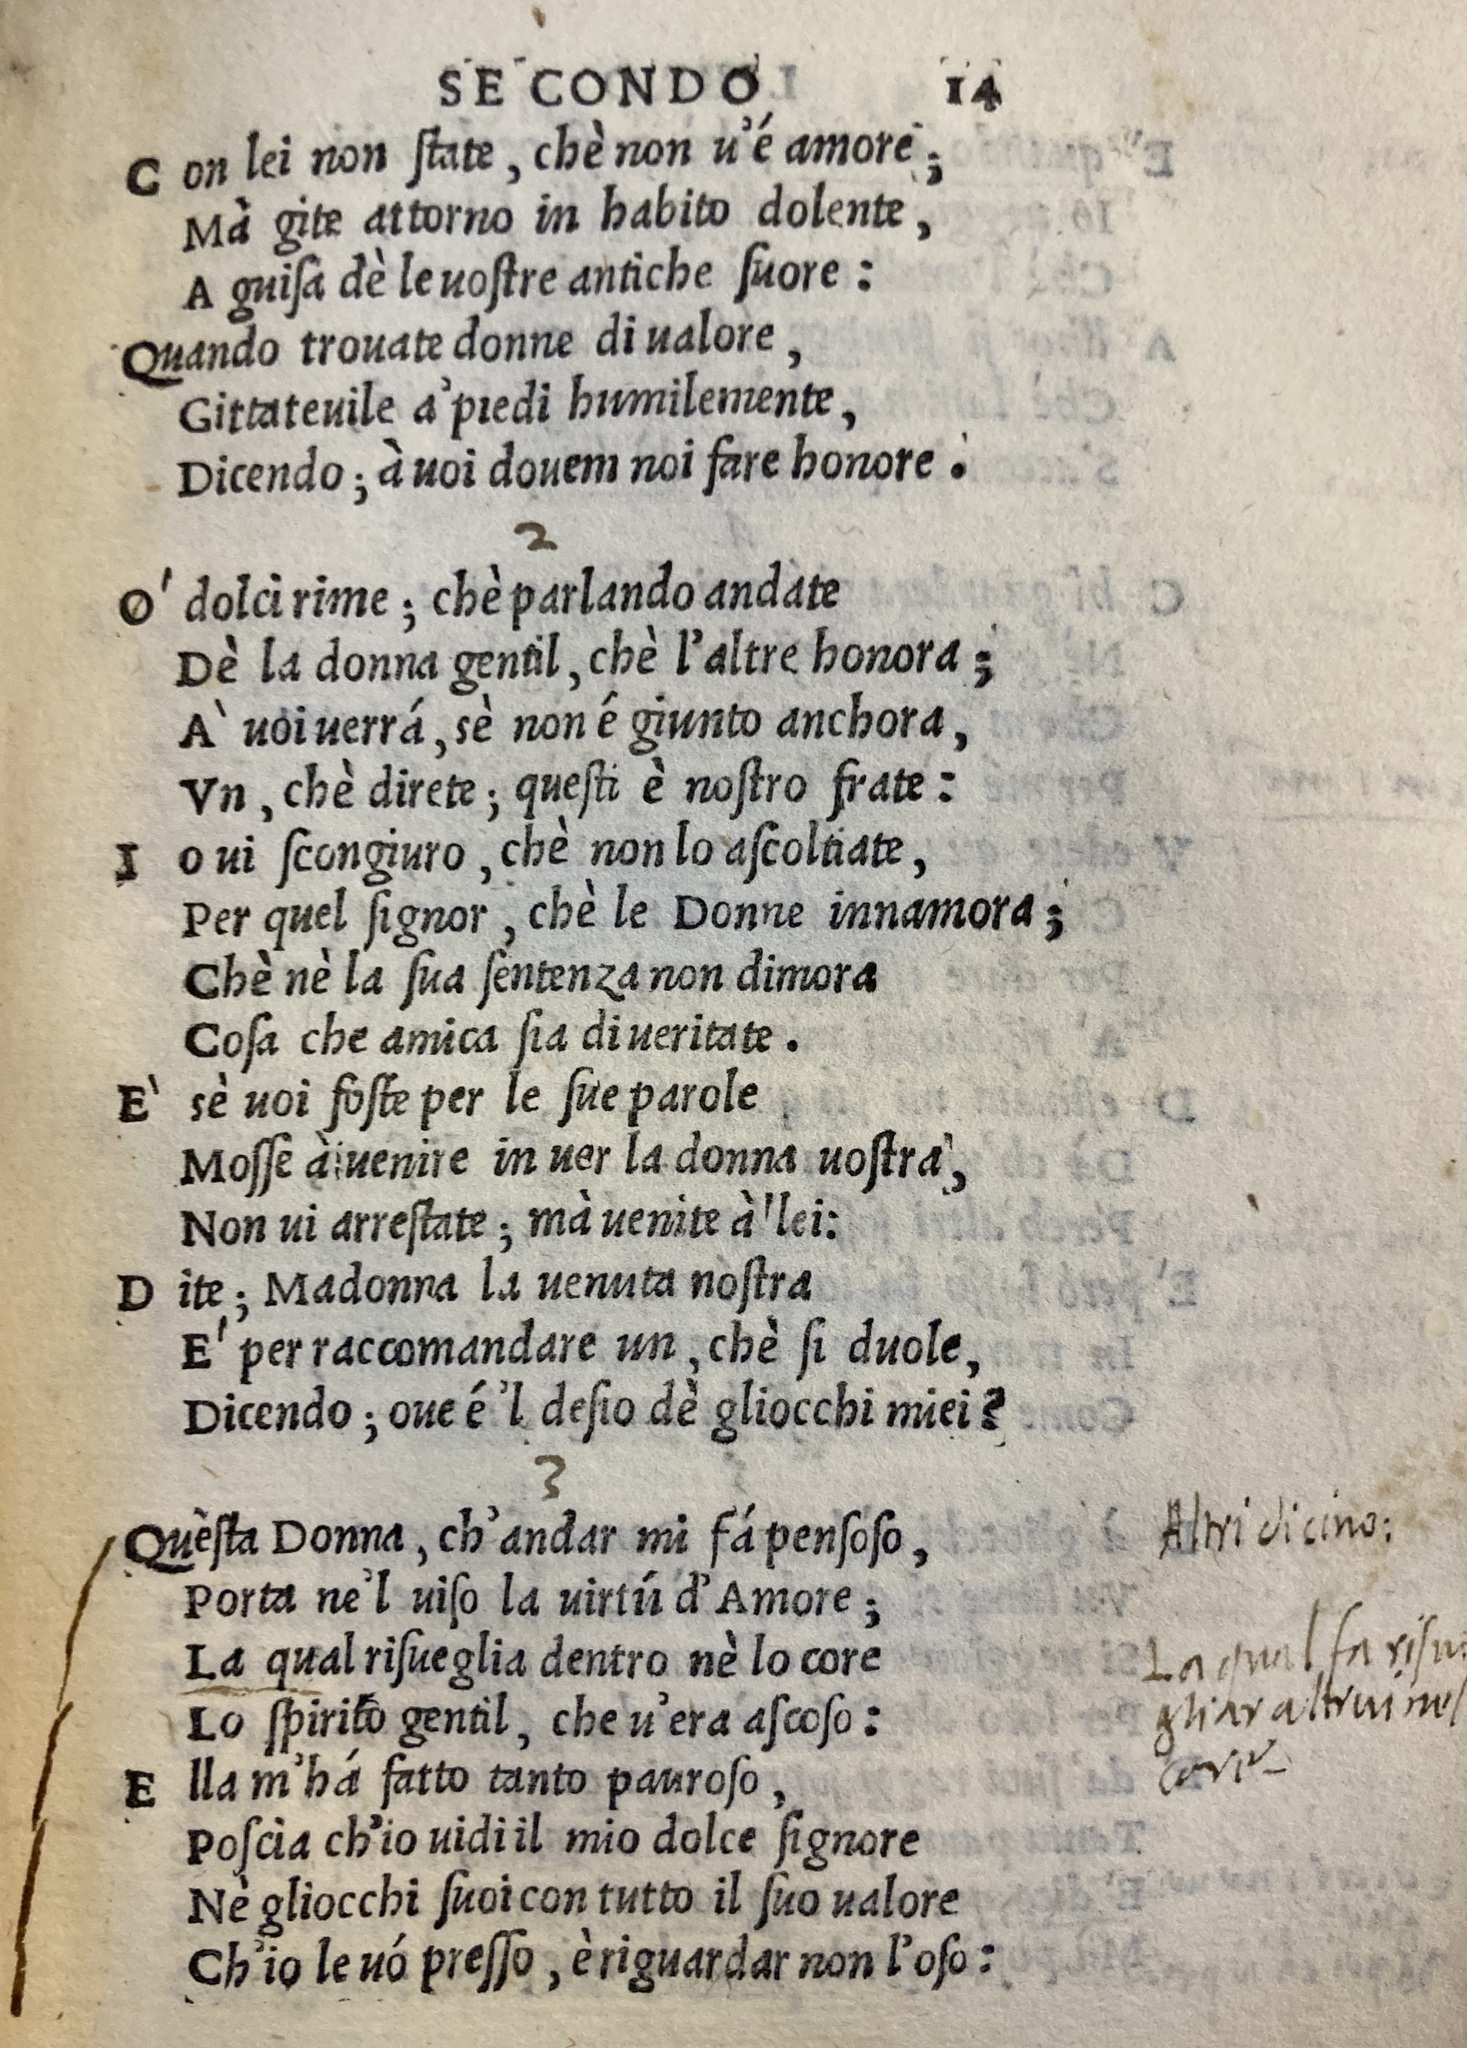 SECONDO 14
Con lei non ſtate, chè non u'é amore;
Mà gite attorno in habito dolente,
A guiſa dè le uoſtre antiche ſuore:
Quando trouate donne di ualore,
Gittateuile a' piedi humilemente,
Dicendo; à uoi douem noi fare honore.
2
O' dolci rime; chè parlando andate
Dè la donna gentil, chè l'altre honora;
A' uoi uerrá, sè non é giunto anchora,
Vn, chè direte; queſti è noſtro frate:
Io ui ſcongiuro, chè non lo aſcoltiate,
Per quel ſignor, chè le Donne innamora;
Chè nè la ſua ſentenza non dimora
Coſa che amica ſia di ueritate.
E' sè uoi foſte per le ſue parole
Moſſe à uenire in uer la donna uoſtra,
Non ui arreſtate; mà uenite à lei:
Dite; Madonna la uenuta noſtra
E' per raccomandare un, chè ſi duole,
Dicendo; oue é 'l deſio dè gliocchi miei?
3
Quèſta Donna, ch'andar mi fá penſoſo,
Altri dicino:
Porta ne'l uiſo la uirtú d'Amore;
La qual riſueglia dentro nè lo core
La qual fa riſue
Lo ſpirito gentil, che u'era aſcoſo:
gliar altrui nel
Ella m'há fatto tanto pauroſo,
core
Poſcia ch'io uidi il mio dolce ſignore
Nè gliocchi ſuoi con tutto il ſuo ualore
Ch'io le uó preſſo, è riguardar non l'oſo: